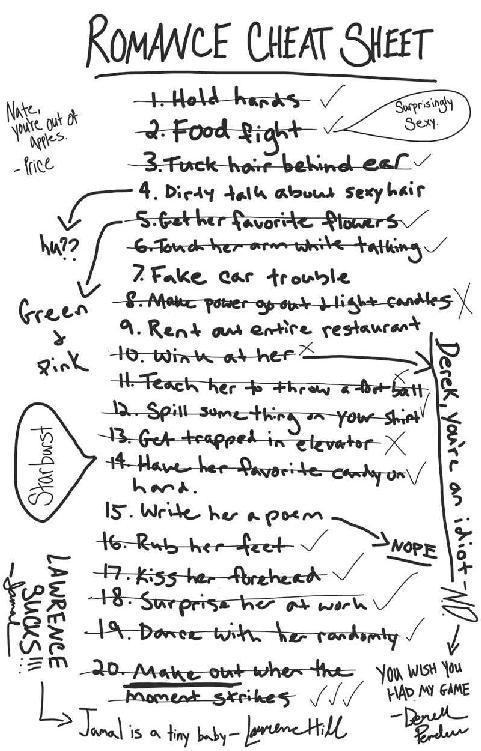 ROMANCE CHEAT SHEET
Nate,
you're out of
apples.
- Price
1. Hold hands ✓
2. Food fight ✓
Surprisingly
Sexy.
3. Tuck hair behind ear ✓
4. Dirty talk about sexy hair
hu??
5. Get her favorite flowers ✓
Green
&
Pink
6. Touch her arm while talking ✓
7. Fake car trouble
8. Make power go out & light candles X
9. Rent out entire restaurant
10. Wink at her X
Derek, you're an idiot - ND.
11. Teach her to throw a football X
12. Spill something on your shirt ✓
13. Get trapped in elevator X
14. Have her favorite candy on ✓
hand.
Starburst
15. Write her a poem
NOPE
16. Rub her feet ✓
17. Kiss her forehead ✓
18. Surprise her at work ✓
19. Dance with her randomly ✓
20. Make out when the
moment strikes ✓✓✓
LAWRENCE
SUCKS!!!
- Jamal
Jamal is a tiny baby - Lawrence Hill
YOU WISH YOU
HAD MY GAME
- Derek